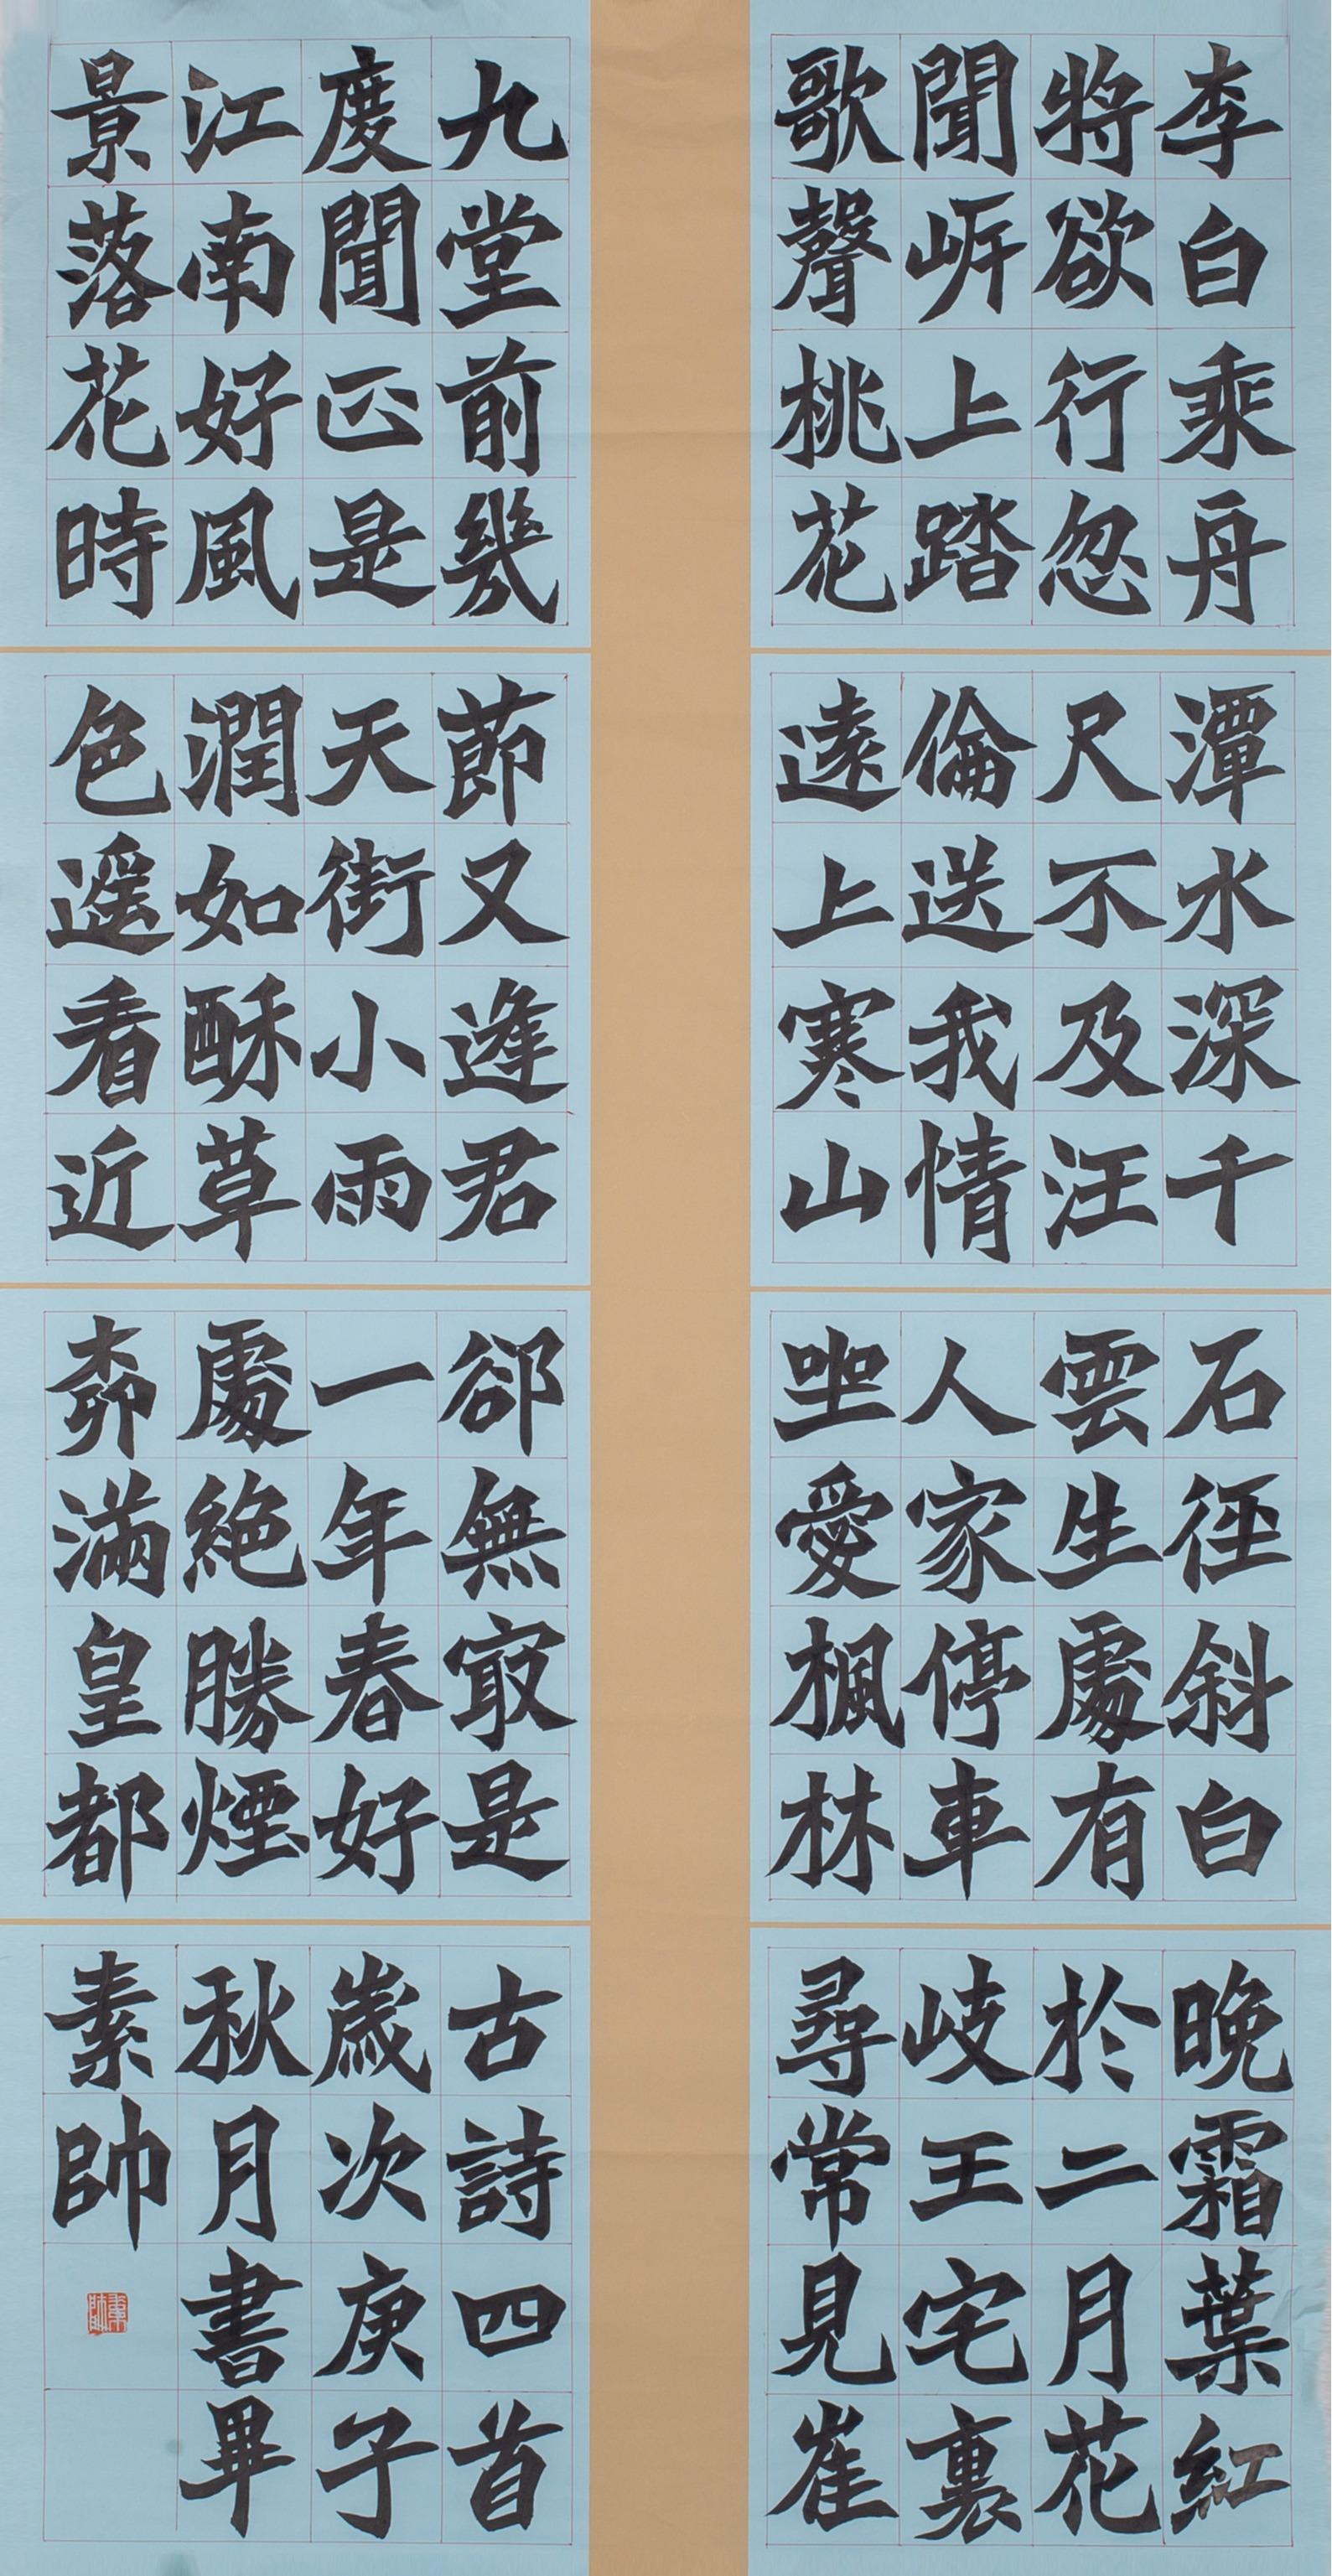 李白乘舟
將欲行忽
聞岸上踏
歌聲桃花
潭水深千
尺不及汪
倫送我情
遠上寒山
石徑斜白
雲生處有
人家停車
坐愛楓林
晚霜葉紅
於二月花
岐王宅裏
尋常見崔
九堂前幾
度聞正是
江南好風
景落花時
節又逢君
天街小雨
潤如酥草
色遥看近
卻無最是
一年春好
處絕勝煙
柳滿皇都
古詩四首
歲次庚子
秋月書畢
素帥